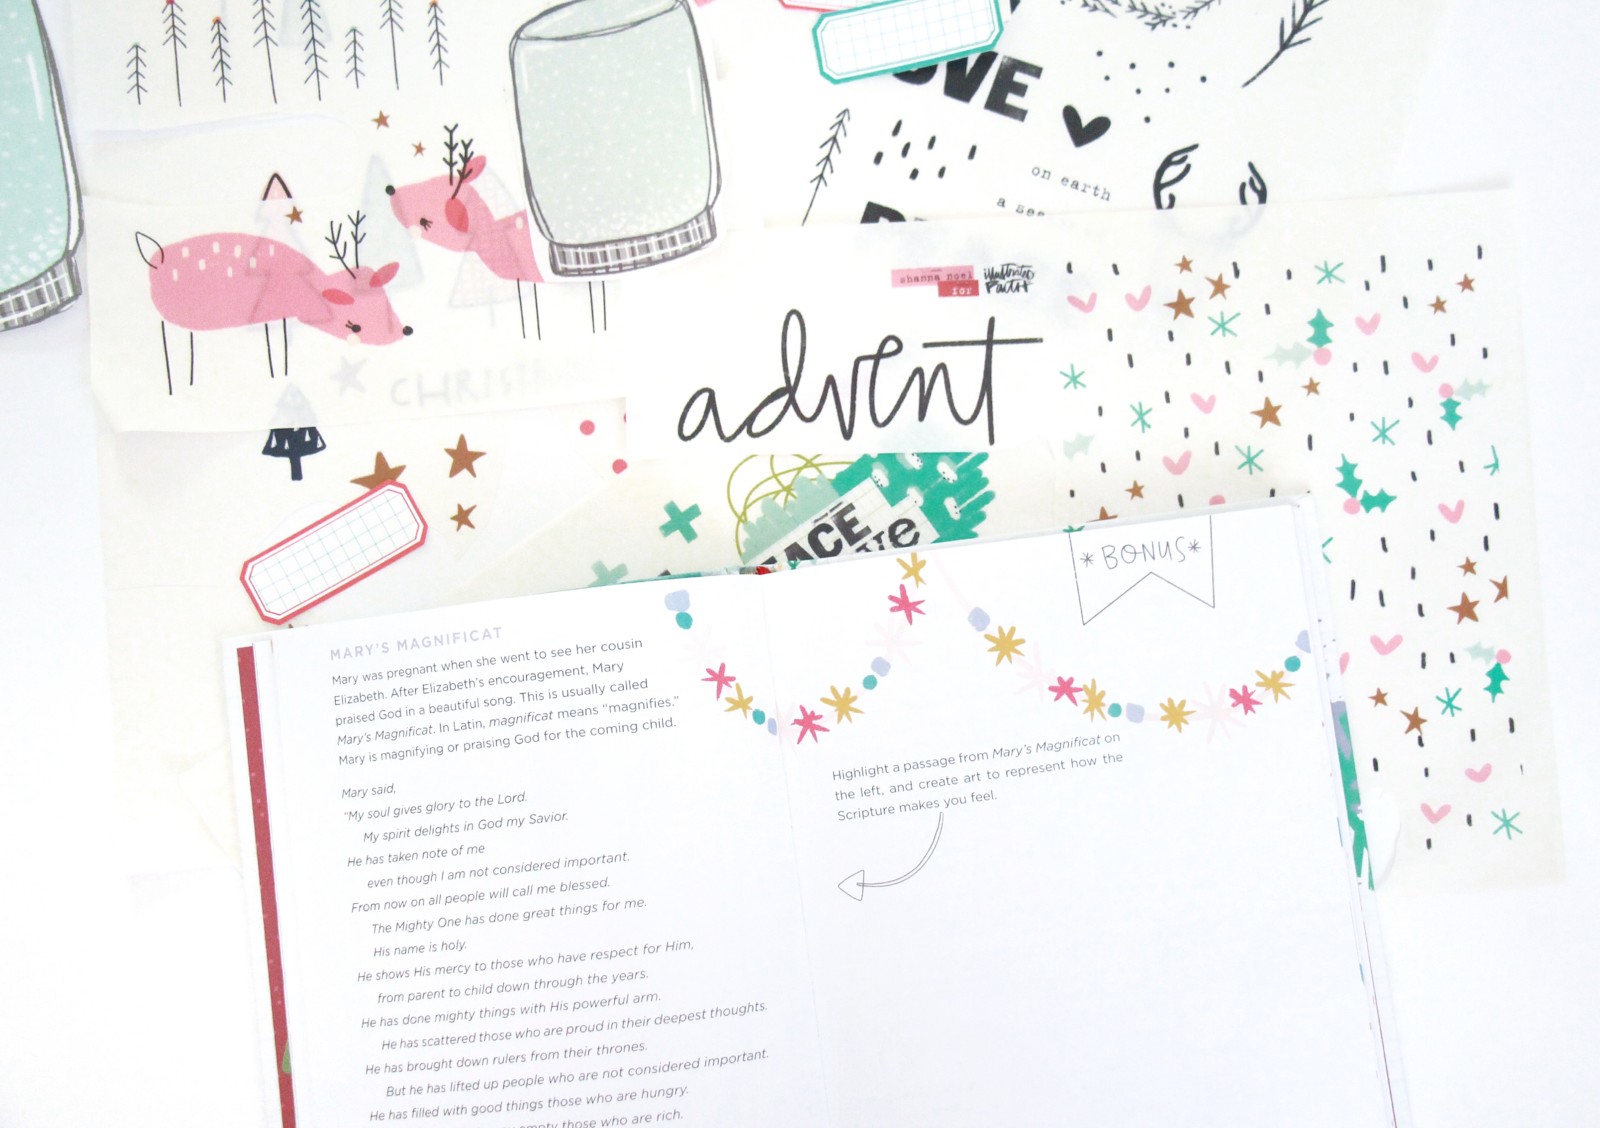 OVE
on earth
a
shanna noel
for
illustrated
FAITH
advent
CHRIST
*BONUS*
MARY'S MAGNIFICAT
Mary was pregnant when she went to see her cousin
Elizabeth. After Elizabeth's encouragement, Mary
praised God in a beautiful song. This is usually called
Mary's Magnificat. In Latin, magnificat means "magnifies."
Mary is magnifying or praising God for the coming child.
Mary said,
"My soul gives glory to the Lord.
My spirit delights in God my Savior.
He has taken note of me
even though I am not considered important.
From now on all people will call me blessed.
The Mighty One has done great things for me.
His name is holy.
He shows His mercy to those who have respect for Him,
from parent to child down through the years.
He has done mighty things with His powerful arm.
He has scattered those who are proud in their deepest thoughts.
He has brought down rulers from their thrones.
But he has lifted up people who are not considered important.
He has filled with good things those who are hungry.
those who are rich.
Highlight a passage from Mary's Magnificat on
the left, and create art to represent how the
Scripture makes you feel.